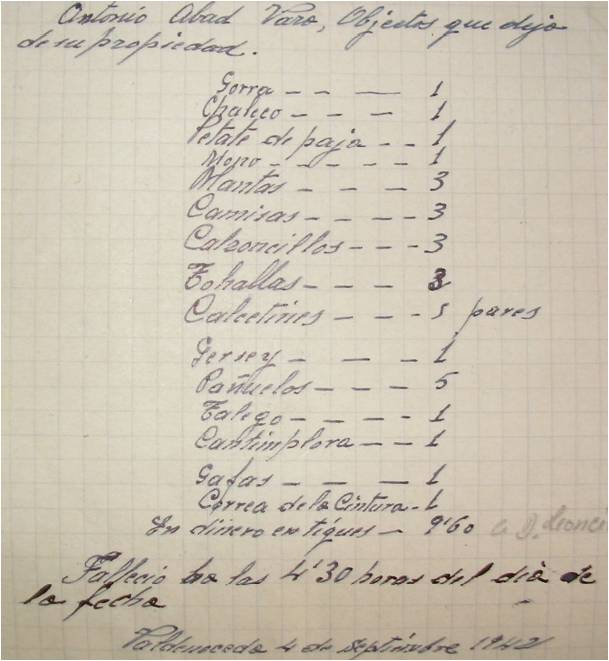 Antonio Abad Varo, Objectos, que dijo
de su propiedad.
Gorra - - - 1
Chaleco - - - 1
Petate de paja - - 1
Mono - - - - - 1
Mantas - - - 3
Camisas - - - - 3
Calzoncillos - - - 3
Tohallas - - - 3
Calcetines - - - - 5 pares
Jersey - - - 1
Pañuelos - - - 5
Talego - - - - 1
Cantimplora - - 1
Gafas - - - 1
Correa de la Cintura - 1
En dinero en tiques - 9'60
Fallecio a las 4'30 horas del dia de
la fecha
Valdenoceda 4 de septimbre 1942